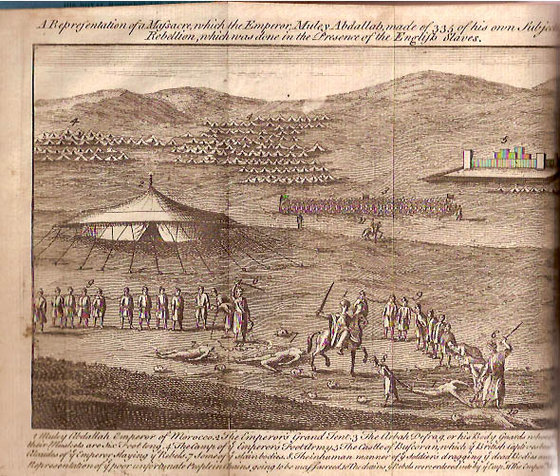 A Representation of a Massacre, which the Emperor, Muley Abdallah, made of 335 of his own Subjec
Rebellion, which was done in the Presence of the English Slaves.
4
4
5
1 Muley Abdallah Emperor of Morocco, 2 The Emperor's Grand Tent. 3 The Arbah Defrag, or his Body Guards whose
their Muskets are six Foot long. 4 The Camp of ye Emperors Foot Army, 5 The Castle of Buscoran, which ye British captives
Alcaydes of ye Emperor slaying ye Rebels. 7 Some of ye slain bodies. 8 The inhuman manner of ye Soldiers dragging ye dead Bodies
Representation of ye poor unfortunate People in Chains, going to be massacred. 10 The chains ye Rebels